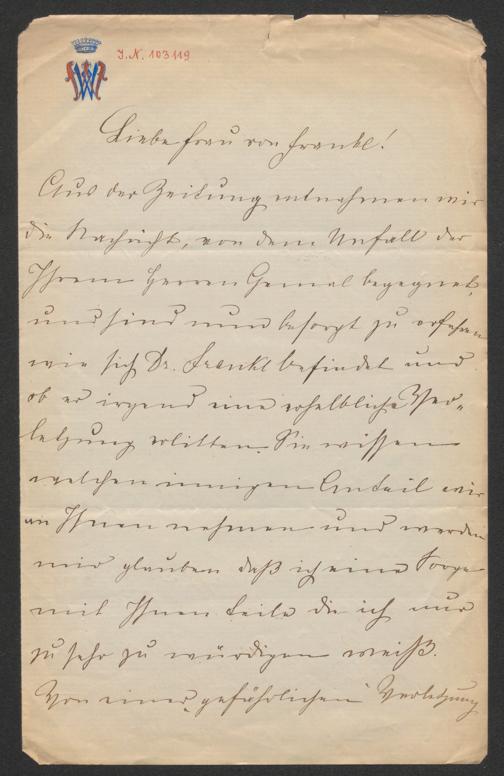 J.N. 103119
Liebe Frau von Frankl!
Aus der Zeitung entnehmen wir
die Nachricht, von dem Unfall der
Ihrem Herren Gemal begegnet,
und sind nun besorgt zu erfahren
wie sich Dr. Frankl befindet und
ob er irgend eine erhebliche Ver-
letzung erlitten. Sie wissen
welchen innigen Anteil wir
an Ihnen nehmen und werden
mir glauben daß ich eine Sorge
mit Ihnen teile die ich nur
zu sehr zu würdigen weiß.
Von einer „gefährlichen" Verletzung